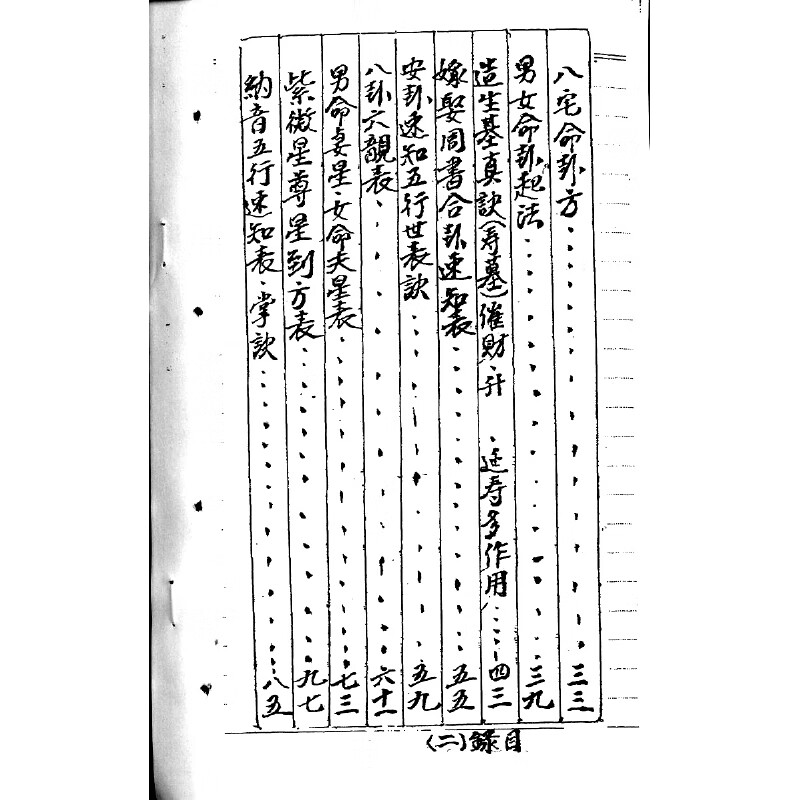 八宅命卦方⋯⋯三三
男女命卦起法⋯⋯三九
造生基真訣(寿墓)催財、升 、延寿多作用⋯⋯四三
嫁娶周書合卦速知表⋯⋯五五
安卦速知五行世表訣⋯⋯五九
八卦六親表⋯⋯六十一
男命妻星、女命夫星表⋯⋯七三
紫微星尊星到方表⋯⋯九七
納音五行速知表、掌訣⋯⋯八五
目錄(二)